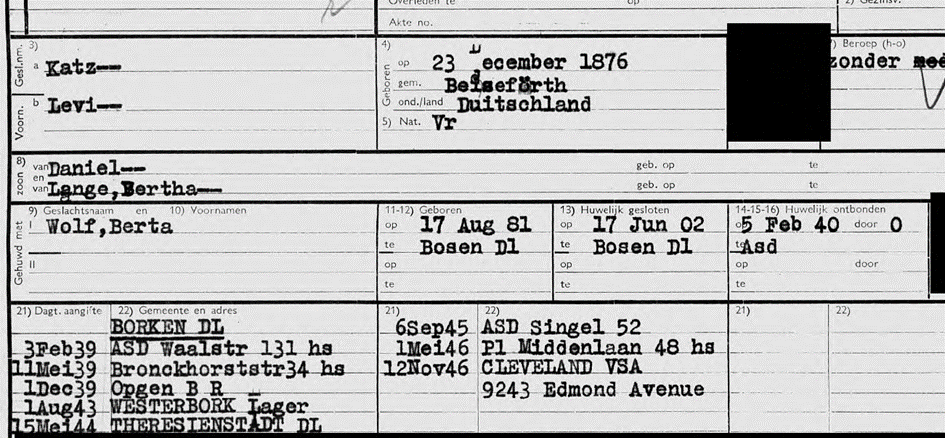 Overleden te op 2) Gezinsv.
Akte no.
3) Gesl.nm. a Katz--
b Voorn. Levi--
4) Geboren op 23 December 1876
gem. Beiseförth
ond./land Duitschland
5) Nat. Vr
7) Beroep (h-o)
zonder
8) zoon van Daniel-- geb. op te
en van Lange,Bertha-- geb. op te
9) Geslachtsnaam en 10) Voornamen 11-12) Geboren 13) Huwelijk gesloten 14-15-16) Huwelijk ontbonden
Gehuwd met I Wolf,Berta op 17 Aug 81 op 17 Jun 02 op 5 Feb 40 door O
te Bosen Dl te Bosen Dl te Asd
II op op op door
te te te
21) Dagt. aangifte 22) Gemeente en adres 21) 22) 21) 22)
BORKEN DL 6Sep45 ASD Singel 52
3Feb39 ASD Waalstr 131 hs 1Mei46 Pl Middenlaan 48 hs
11Mei39 Bronckhorststr34 hs 12Nov46 CLEVELAND VSA
1Dec39 Opgen B R 9243 Edmond Avenue
1Aug43 WESTERBORK Lager
15Mei44 THERESIENSTADT DL